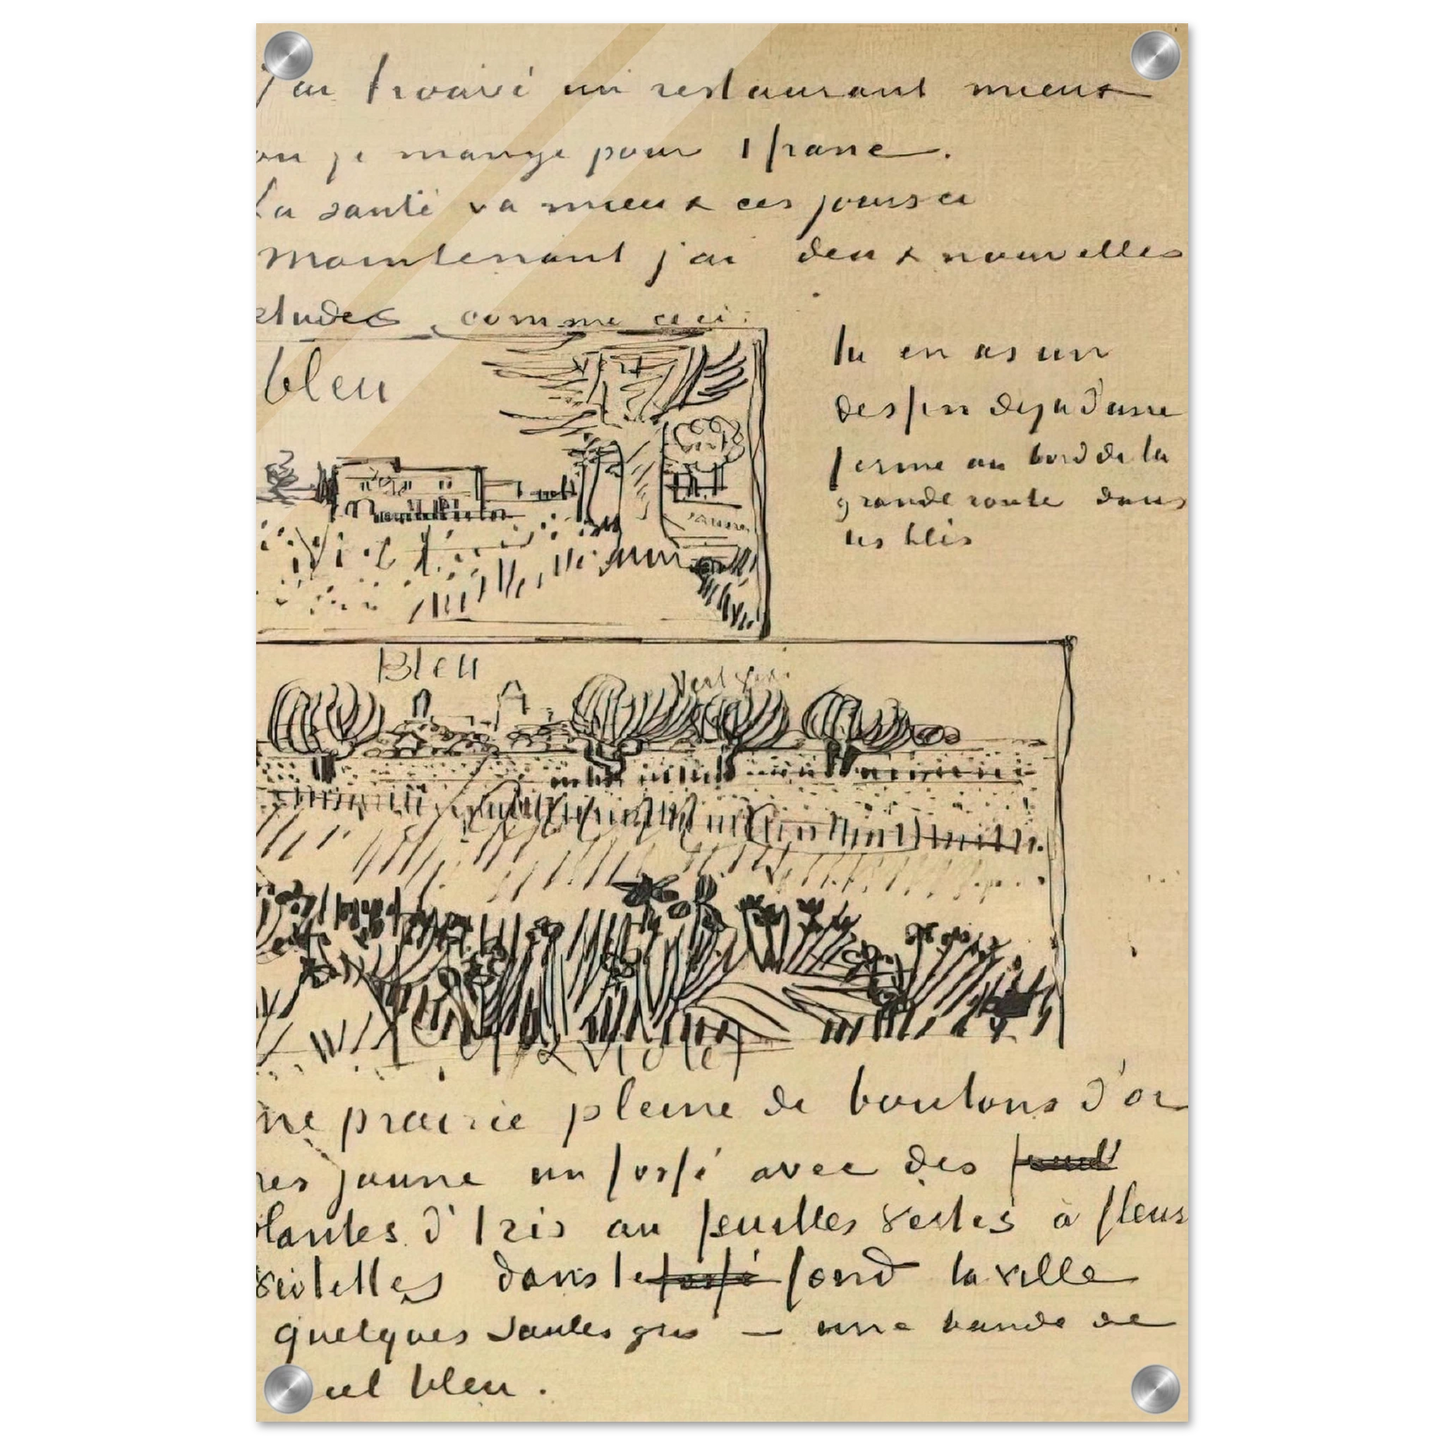 J'ai trouvé un restaurant mieux
ou je mange pour 1 franc.
La santé va mieux ces jours ci
Maintenant j'ai deux nouvelles
etudes comme ceci:
bleu
vert
vert
jaune
tu en as un
dessin deja d'une
ferme au bord de la
grande route dans
les blés
Bleu
Vert gris
& violet
ne prairie pleine de boutons d'or
res jaune un fossé avec des
plantes d'Iris au feuilles vertes à fleurs
violettes dans le fossé fond la ville
quelques saules gris – une bande de
ciel bleu.